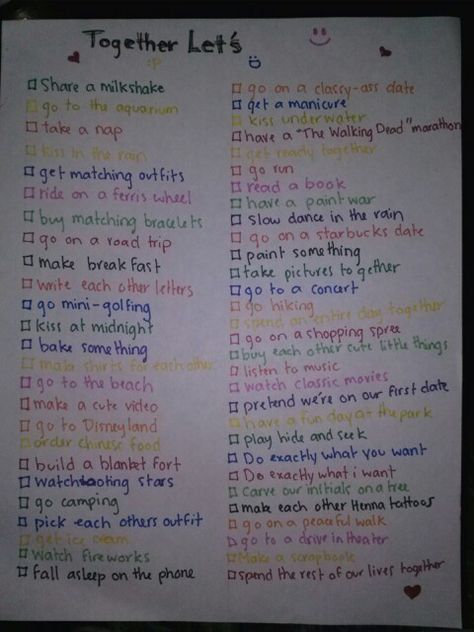 Together Let's
:P
:D
Share a milkshake
go to the aquarium
take a nap
kiss in the rain
get matching outfits
ride on a ferris wheel
buy matching bracelets
go on a road trip
make breakfast
write each other letters
go mini-golfing
kiss at midnight
bake something
make shirts for each other
go to the beach
make a cute video
go to Disneyland
order chinese food
build a blanket fort
watch shooting stars
go camping
pick each others outfit
get ice cream
watch fireworks
fall asleep on the phone
go on a classy-ass date
get a manicure
kiss underwater
have a "The Walking Dead" marathon
get ready together
go run
read a book
have a paint war
slow dance in the rain
go on a starbucks date
paint something
take pictures together
go to a concert
go hiking
spend an entire day together
go on a shopping spree
buy each other cute little things
listen to music
watch classic movies
pretend we're on our first date
have a fun day at the park
play hide and seek
Do exactly what you want
Do exactly what i want
Carve our initials on a tree
make each other Henna tattoos
go on a peaceful walk
go to a drive in theater
Make a scrapbook
spend the rest of our lives together